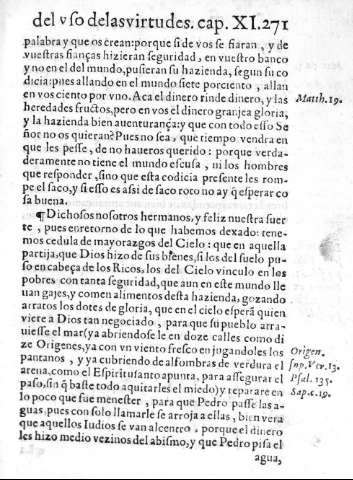 del vso delas virtudes. cap. XI. 271
palabra y que os crean: porque si de vos se fiaran, y de
vuestras fianças hizieran seguridad, en vuestro banco
y no en el del mundo, pusieran su hazienda, segun su co
dicia: pues allando en el mundo siete porciento, allan
en vos ciento por vno. Aca el dinero rinde dinero, y las
Matth. 19.
heredades fructos, pero en vos el dinero grangea gloria,
y la hazienda bien auenturança: y que con todo esso Se
ñor no os quieran? Pues no sea, que tiempo vendra en
que les pesse, de no haueros querido: porque verda-
deramente no tiene el mundo escusa, ni los hombres
que responder, sino que esta codicia presente les rom-
pe el saco, y si esso es assi de saco roto no ay q̃ esperar co
sa buena.
¶ Dichosos nosotros hermanos, y feliz nuestra suer
te, pues en retorno de lo que habemos dexado: tene-
mos cedula de mayorazgos del Cielo: que en aquella
partija, que Dios hizo de sus bienes, si los del suelo pu-
so en cabeça de los Ricos, los del Cielo vinculo en los
pobres con tanta seguridad, que aun en este mundo lle
uan gajes, y comen alimentos desta hazienda, gozando
arratos los dotes de gloria, que en el cielo esperã quien
viere a Dios tan negociado, para que su pueblo atra-
uiesse el mar (ya abriendosele en doze calles como di
ze Origenes, ya con vn viento fresco enjugandoles los
Origen.
pantanos, y ya cubriendo de alfombras de verdura el
sup. Ver. 13.
arena, como el Espiritusanto apunta, para assegurar el
Psal. 135.
paso, sin q̃ baste todo aquitarles el miedo) y reparare en
Sap. c. 19.
lo poco que fue menester, para que Pedro passe las a-
guas, pues con solo llamarle se arroja a ellas, bien vera
que aquellos Iudios se van al centro, porque el dinero
les hizo medio vezinos del abismo, y que Pedro pisa el
agua,